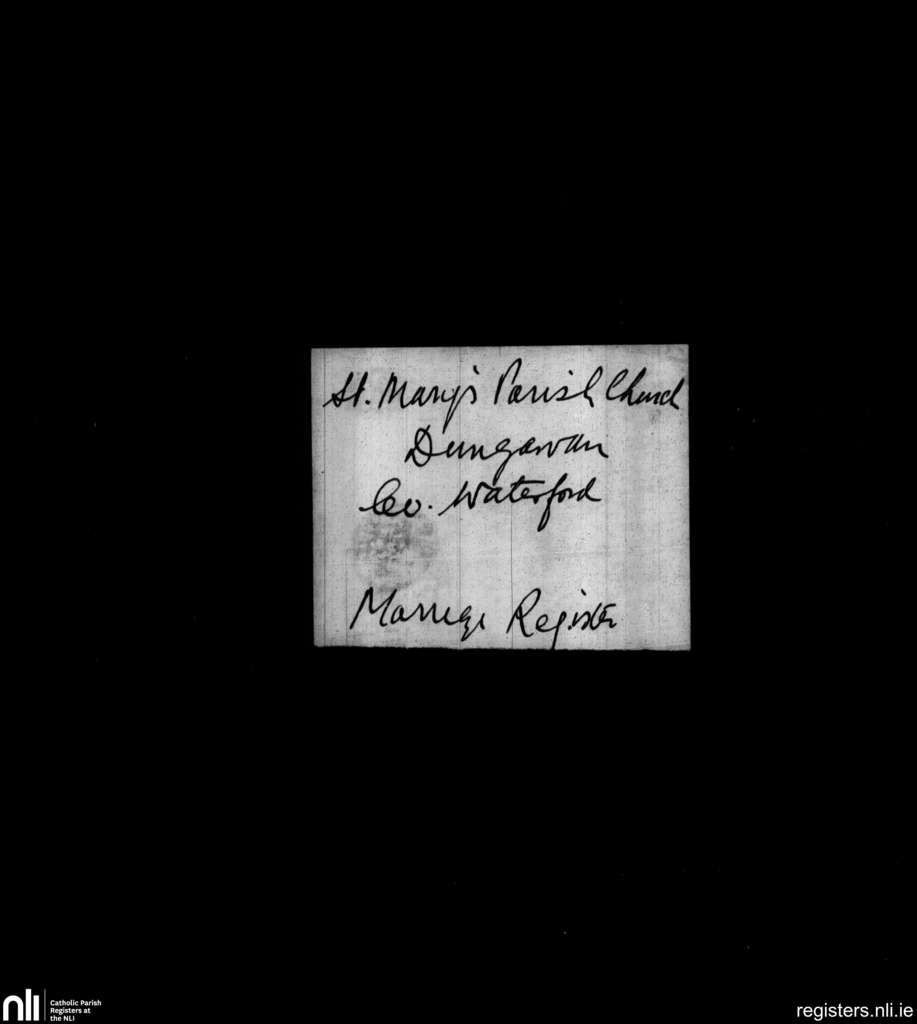 St. Mary's Parish Church
Dungarvan
Co. Waterford
Marriage Register
nli
Catholic Parish
Registers at
the NLI
registers.nli.ie